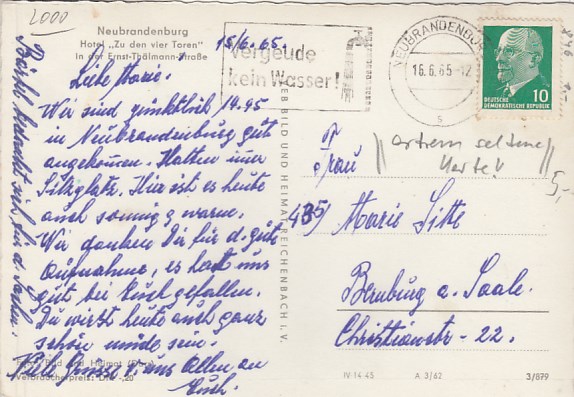 2000
Neubrandenburg
Hotel „Zu den vier Toren"
in der Ernst-Thälmann-Straße
15/6.65.
Liebe Marie!
Wir sind pünktlich 14.45
in Neubrandenburg gut
angekommen. Hatten immer
Sitzplatz. Hier ist es heute
auch sonnig & warm.
Wir danken Dir für d. gute
Aufnahme, es hat uns
gut bei Euch gefallen.
Du wirst heute auch ganz
schön müde sein.
Viele Grüsse v. uns Allen an
Euch.
Bärbel bedankt sich für d.
Bild und Heimat
Verbraucherpreis: DM -,20
VEB BILD UND HEIMAT REICHENBACH I. V.
Vergeude
kein Wasser!
NEUBRANDENBURG
16.6.65-12
s
DEUTSCHE
DEMOKRATISCHE REPUBLIK
10
extrem seltene
Karte!
5,-
Frau
435
Marie Sitte
Bernburg a. Saale
Christianstr - 22.
IV-14-45
A 3/62
3/879